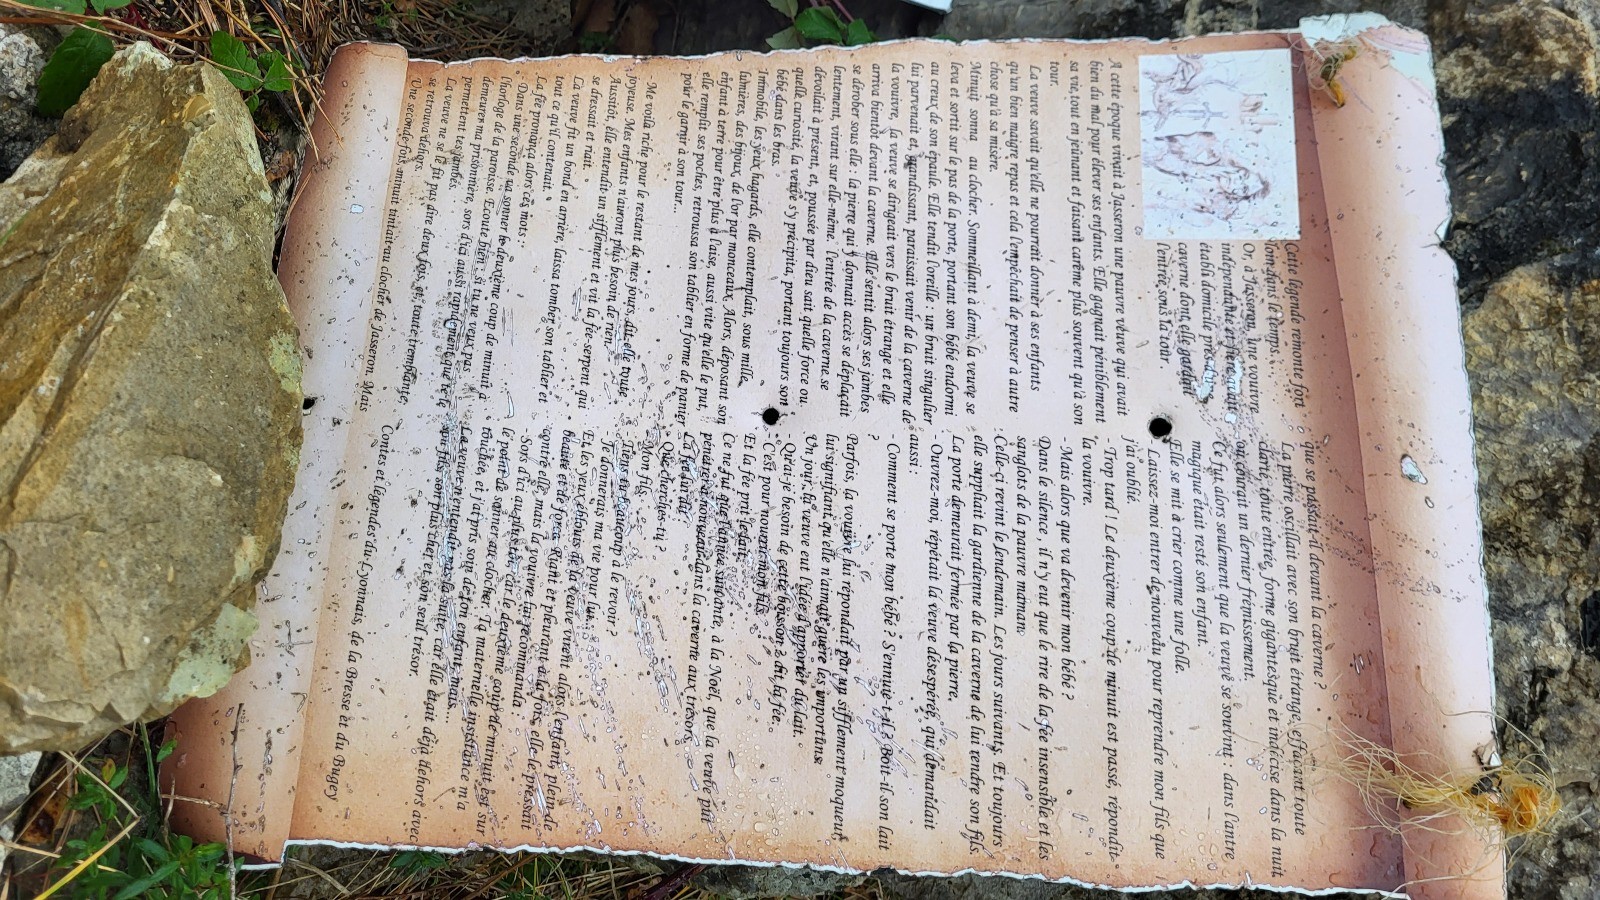 Cette légende remonte fort
loin dans le temps...
Or, à Jasseron, une vouivre
indépendante et fière avait
établi domicile près d'une
caverne dont elle gardait
l'entrée, sous la tour
A cette époque vivait à Jasseron une pauvre veuve qui avait
bien du mal pour élever ses enfants. Elle gagnait péniblement
sa vie, tout en jeunant et faisant carême plus souvent qu'à son
tour.
La veuve savait qu'elle ne pourrait donner à ses enfants
qu'un bien maigre repas et cela l'empêchait de penser à autre
chose qu'à sa misère.
Minuit sonna au clocher. Sommeillant à demi, la veuve se
leva et sortit sur le pas de la porte, portant son bébé endormi
au creux de son épaule. Elle tendit l'oreille : un bruit singulier
lui parvenait et, grandissant, paraissait venir de la caverne de
la vouivre, la veuve se dirigeat vers le bruit étrange et elle
arriva bientôt devant la caverne. Elle sentit alors ses jambes
se dérober sous elle : la pierre qui y donnait accès se déplaçait
lentement, virant sur elle-même. l'entrée de la caverne se
dévoilait à présent, et, poussée par dieu sait quelle force ou
quelle curiosité, la veuve s'y précipita, portant toujours son
bébé dans les bras.
Immobile, les yeux hagards, elle contemplait, sous mille
lumières, des bijoux, de l'or par monceaux. Alors, déposant son
enfant à terre pour être plus à l'aise, aussi vite qu'elle le put,
elle remplit ses poches, retroussa son tablier en forme de panier
pour le garnir à son tour...
-Me voilà riche pour le restant de mes jours, dit-elle toute
joyeuse. Mes enfants n'auront plus besoin de rien.
Aussitôt, elle entendit un sifflement et vit la fée-serpent qui
se dressait et riait.
La veuve fit un bond en arrière, laissa tomber son tablier et
tout ce qu'il contenait.
La fée prononça alors ces mots :
-Dans une seconde va sonner le deuxième coup de minuit à
l'horloge de la paroisse. Ecoute bien : si tu ne veux pas
demeurer ma prisonnière, sors d'ici aussi rapidement que te le
permettent tes jambes.
La veuve ne se le fit pas dire deux fois, et, toute tremblante,
se retrouva dehors.
Une seconde fois minuit tintait au clocher de Jasseron. Mais
que se passait-il devant la caverne ?
La pierre oscillait avec son bruit étrange, effaçant toute
clarté, toute entrée, forme gigantesque et indécise dans la nuit
où courait un dernier frémissement.
Ce fut alors seulement que la veuve se souvint : dans l'antre
magique était resté son enfant.
Elle se mit à crier comme une folle.
Laissez-moi entrer de nouveau pour reprendre mon fils que
j'ai oublié.
-Trop tard ! Le deuxième coup de minuit est passé, répondit
la vouivre.
-Mais alors que va devenir mon bébé ?
Dans le silence, il n'y eut que le rire de la fée insensible et les
sanglots de la pauvre maman.
Celle-çi revint le lendemain. Les jours suivants. Et toujours
elle suppliait la gardienne de la caverne de lui rendre son fils.
La porte demeurait fermée par la pierre.
- Ouvrez-moi, répétait la veuve désespérée, qui demandait
aussi :
- Comment se porte mon bébé ? S'ennuie-t-il ? Boit-il son lait
?
Parfois, la vouivre lui répondait par un sifflement moqueur
lui signifiant qu'elle n'aimait guère les importuns.
Un jour, la veuve eut l'idée d'apporter du lait.
- Qu'ai-je besoin de cette boisson ? dit la fée.
-C'est pour nourrir mon fils.
Et la fée prit le lait.
Ce ne fut que l'année suivante, à la Noël, que la veuve put
pénétrer à nouveau dans la caverne aux trésors.
La fée lui dit :
Que cherches-tu ?
Mon fils.
Tiens-tu beaucoup à le revoir ?
Je donnerais ma vie pour lui.
Et les yeux éblouis de la veuve virent alors l'enfant, plein de
beauté et de force. Riant et pleurant à la fois, elle le pressait
contre elle mais la vouivre lui recommanda :
-Sors d'ici au plus tôt, car le deuxième coup de minuit est sur
le point de sonner au clocher. Ta maternelle insistance m'a
touchée, et j'ai pris soin de ton enfant, mais....
La veuve n'entendit pas la suite, car elle était déjà dehors avec
son fils, son plus cher et son seul trésor.
Contes et légendes du Lyonnais, de la Bresse et du Bugey